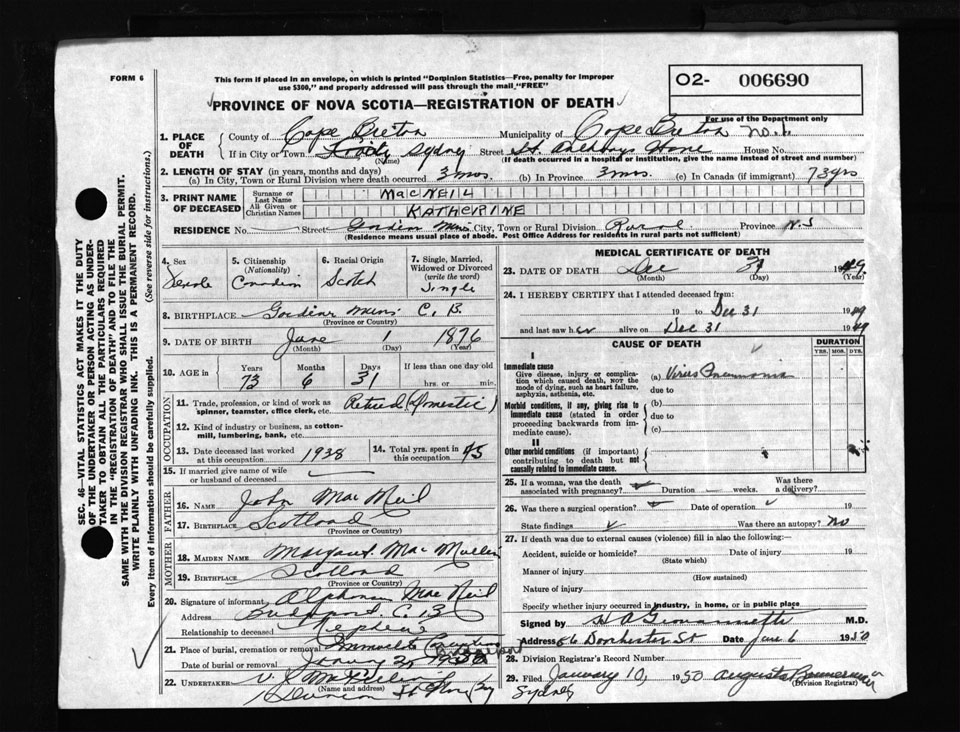 FORM 6
This form if placed in an envelope, on which is printed "Dominion Statistics—Free, penalty for improper
use $300," and properly addressed will pass through the mail "FREE"
O2- 006690
PROVINCE OF NOVA SCOTIA—REGISTRATION OF DEATH
For use of the Department only
1. PLACE OF DEATH
County of Cape Breton Municipality of Cape Breton No. 1.
If in City or Town Sydney Street St. Anthonys Home House No.
(Name) (If death occurred in a hospital or institution, give the name instead of street and number)
2. LENGTH OF STAY (in years, months and days)
(a) In City, Town or Rural Division where death occurred 3 mos. (b) In Province 3 mos. (c) In Canada (if immigrant) 73 yrs
3. PRINT NAME OF DECEASED
Surname or Last Name MACNEIL
All Given or Christian Names KATHERINE
RESIDENCE No. Street City, Town or Rural Division Rural Province N.S
(Residence means usual place of abode. Post Office Address for residents in rural parts not sufficient)
4. Sex Female
5. Citizenship (Nationality) Canadian
6. Racial Origin Scotch
7. Single, Married, Widowed or Divorced (write the word) Single
8. BIRTHPLACE C. B.
(Province or Country)
9. DATE OF BIRTH June 1 1876
(Month) (Day) (Year)
10. AGE in Years Months Days If less than one day old
73 6 31 hrs. or min.
OCCUPATION
11. Trade, profession, or kind of work as spinner, teamster, office clerk, etc. Retired (Domestic)
12. Kind of industry or business, as cotton-mill, lumbering, bank, etc.
13. Date deceased last worked at this occupation 1938
14. Total yrs. spent in this occupation 45
15. If married give name of wife or husband of deceased
FATHER
16. Name John MacNeil
17. Birthplace Scotland
(Province or Country)
MOTHER
18. MAIDEN NAME Margaret MacMullen
19. BIRTHPLACE Scotland
(Province or Country)
20. Signature of informant Alphonsus MacNeil
Address C. B
Relationship to deceased Nephew
21. Place of burial, cremation or removal
Date of burial or removal January
22. UNDERTAKER
(Name and address)
MEDICAL CERTIFICATE OF DEATH
23. DATE OF DEATH Dec 31 1949
(Month) (Day) (Year)
24. I HEREBY CERTIFY that I attended deceased from:
19 to Dec 31 1949
and last saw her alive on Dec 31 1949
CAUSE OF DEATH
DURATION
YRS. MOS. DYS.
I
Immediate cause
Give disease, injury or complication which caused death, NOT the mode of dying, such as heart failure, asphyxia, asthenia, etc.
(a) Virus Pneumonia
due to
Morbid conditions, if any, giving rise to immediate cause (stated in order proceeding backwards from immediate cause).
(b)
due to
(c)
II
Other morbid conditions (if important) contributing to death but not causally related to immediate cause.
25. If a woman, was the death associated with pregnancy? Duration weeks. Was there a delivery?
26. Was there a surgical operation? Date of operation 19
State findings Was there an autopsy? No
27. If death was due to external causes (violence) fill in also the following:—
Accident, suicide or homicide? Date of injury 19
(State which)
Manner of injury
(How sustained)
Nature of injury
Specify whether injury occurred in industry, in home, or in public place
Signed by M.D.
Address 56 Dorchester St Date 6 1950
28. Division Registrar's Record Number
29. Filed January 10, 1950
(Division Registrar)
Sydney
SEC. 46—VITAL STATISTICS ACT MAKES IT THE DUTY
OF THE UNDERTAKER OR PERSON ACTING AS UNDER-
TAKER TO OBTAIN ALL THE PARTICULARS REQUIRED
IN THE "REGISTRATION OF DEATH" AND TO FILE THE
SAME WITH THE DIVISION REGISTRAR WHO SHALL ISSUE THE BURIAL PERMIT.
WRITE PLAINLY WITH UNFADING INK. THIS IS A PERMANENT RECORD.
Every item of information should be carefully supplied. (See reverse side for instructions.)